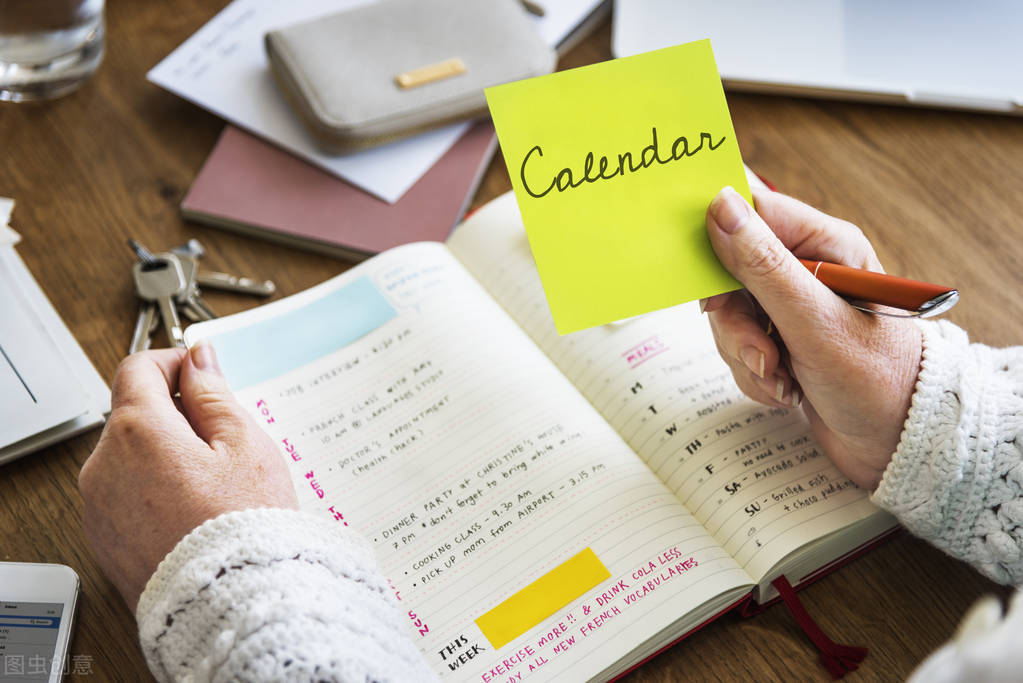 Calendar
JOB INTERVIEW - 4:30 pm
FRENCH CLASS WITH AMY
10 AM @ LANGUAGES STUDIO
DOCTOR'S APPOINTMENT
(health check?)
DINNER PARTY at CHRISTINE'S HOUSE
7 PM • don't forget to bring white wine
COOKING CLASS - 9.30 AM
PICK UP mom from AIRPORT - 3.15 pm
MON
TUE
WED
THU
SUN
THIS
WEEK
EXERCISE MORE!! & DRINK COLA LESS
ALL NEW FRENCH VOCABULARIES
MEALS
M -
T -
W - Roasted
TH - Pasta with
F - PARTY!
no need to cook
SA - Avocado Salad
SU - Grilled fish
+ choco pudding
Inbox
图虫创意